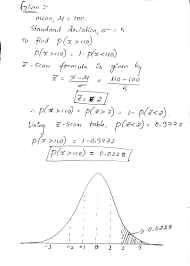 Given :-
mean, μ = 100.
Standard deviation, σ = 5.
To find P(x>110)
P(x>110) = 1- P(x<110)
Z-score formula is given by
Z = x-μ / σ = 110-100 / 5
Z = 2
∴ P(x>110) = P(z>2) = 1- P(z<2)
Using Z-score table, P(z<2) = 0.9772
P(x>110) = 1-0.9772
P(x>110) = 0.0228
0.0228
-3 -2 -1 0 1 2 3